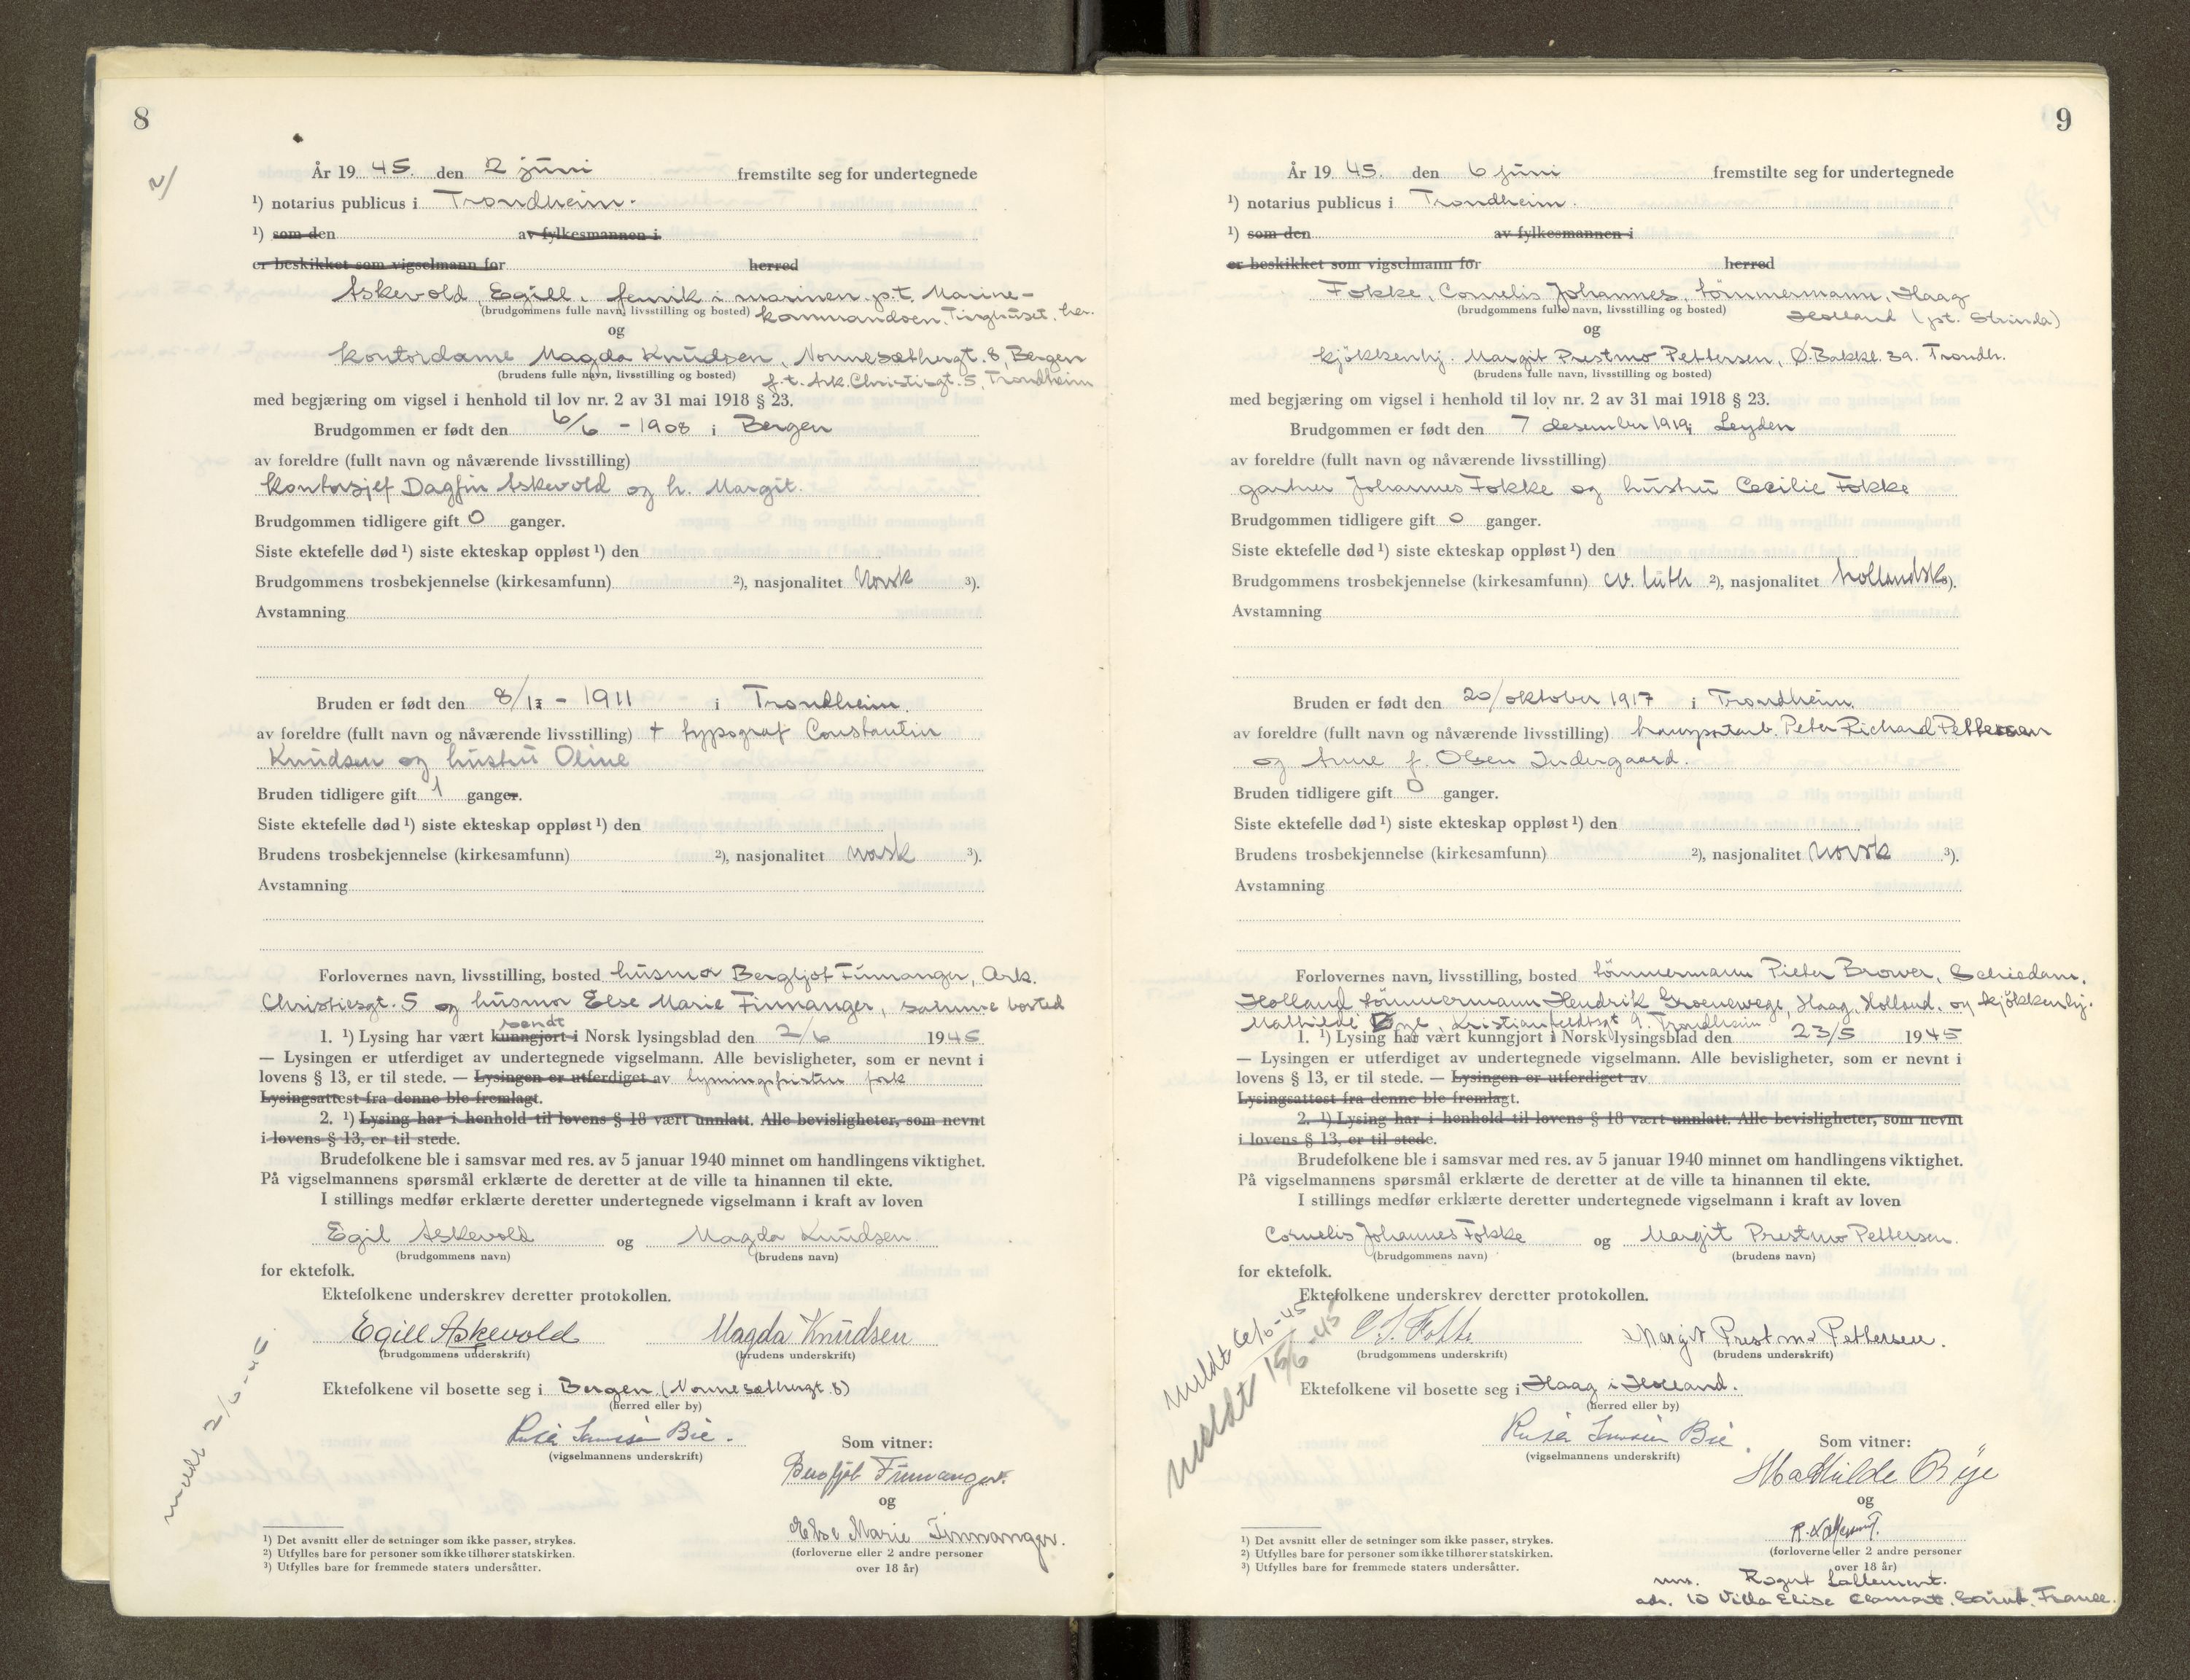 8
2/
År 1945. den 2 juni fremstilte seg for undertegnede
¹) notarius publicus i Trondheim.
¹) som den av fylkesmannen i
er beskikket som vigselmann for herred
Askevold, Egill, fenrik i marinen p.t. Marine-
(brudgommens fulle navn, livsstilling og bosted) kommandoen, Tinghuset, her.
og
kontordame Magda Knudsen, Nonnesætergt. 8, Bergen
(brudens fulle navn, livsstilling og bosted) f.t. Ark. Christiesgt. 5, Trondheim
med begjæring om vigsel i henhold til lov nr. 2 av 31 mai 1918 § 23.
Brudgommen er født den 6/6 - 1908 i Bergen
av foreldre (fullt navn og nåværende livsstilling)
kontorsjef Dagfin Askevold og h. Margit.
Brudgommen tidligere gift 0 ganger.
Siste ektefelle død ¹) siste ekteskap oppløst ¹) den
Brudgommens trosbekjennelse (kirkesamfunn) ²), nasjonalitet Norsk ³).
Avstamning
Bruden er født den 8/ - 1911 i Trondheim.
av foreldre (fullt navn og nåværende livsstilling) † typograf Constantin
Knudsen og hustru Oline
Bruden tidligere gift 1 ganger.
Siste ektefelle død ¹) siste ekteskap oppløst ¹) den
Brudens trosbekjennelse (kirkesamfunn) ²), nasjonalitet norsk ³).
Avstamning
Forlovernes navn, livsstilling, bosted husmor Bergljot Finnanger, Ark.
Christiesgt. 5 og husmor Else Marie Finnanger, samme bosted
sendt
1. ¹) Lysing har vært kunngjort i Norsk lysingsblad den 2/6 1945
— Lysingen er utferdiget av undertegnede vigselmann. Alle bevisligheter, som er nevnt i
lovens § 13, er til stede. — Lysingen er utferdiget av lysningsfristen
Lysingsattest fra denne ble fremlagt.
2. ¹) Lysing har i henhold til lovens § 18 vært unnlatt. Alle bevisligheter, som nevnt
i lovens § 13, er til stede.
Brudefolkene ble i samsvar med res. av 5 januar 1940 minnet om handlingens viktighet.
På vigselmannens spørsmål erklærte de deretter at de ville ta hinannen til ekte.
I stillings medfør erklærte deretter undertegnede vigselmann i kraft av loven
Egil Askevold og Magda Knudsen
(brudgommens navn) (brudens navn)
for ektefolk.
Ektefolkene underskrev deretter protokollen.
Egill Askevold Magda Knudsen
(brudgommens underskrift) (brudens underskrift)
Ektefolkene vil bosette seg i Bergen (Nonnesætergt. 8)
(herred eller by)
Bie.
(vigselmannens underskrift)
Som vitner:
Bergljot Finnanger.
og
Else Marie Finnanger.
(forloverne eller 2 andre personer
over 18 år)
meldt 2/6-45
¹) Det avsnitt eller de setninger som ikke passer, strykes.
²) Utfylles bare for personer som ikke tilhører statskirken.
³) Utfylles bare for fremmede staters undersåtter.
9
År 1945. den 6 juni fremstilte seg for undertegnede
¹) notarius publicus i Trondheim.
¹) som den av fylkesmannen i
er beskikket som vigselmann for herred
Fokke, Cornelis Johannes, tömmermann, Haag
(brudgommens fulle navn, livsstilling og bosted) Holland (pt. Strinda)
og
kjökkenhj. Margit Prestmo Pettersen, Ø. Bakkl. 3a. Trondh.
(brudens fulle navn, livsstilling og bosted)
med begjæring om vigsel i henhold til lov nr. 2 av 31 mai 1918 § 23.
Brudgommen er født den 7 desember 1919 i Leyden
av foreldre (fullt navn og nåværende livsstilling)
gartner Johannes Fokke og hustru Cecilie Fokke
Brudgommen tidligere gift 0 ganger.
Siste ektefelle død ¹) siste ekteskap oppløst ¹) den
Brudgommens trosbekjennelse (kirkesamfunn) ev. luth ²), nasjonalitet hollandsk ³).
Avstamning
Bruden er født den 20/oktober 1917 i Trondheim.
av foreldre (fullt navn og nåværende livsstilling) transportarb. Peter Richard Pettersen
og Anne f. Olsen Indergaard.
Bruden tidligere gift 0 ganger.
Siste ektefelle død ¹) siste ekteskap oppløst ¹) den
Brudens trosbekjennelse (kirkesamfunn) ²), nasjonalitet Norsk ³).
Avstamning
Forlovernes navn, livsstilling, bosted tömmermann Pieter Brower, Schiedam,
Holland tömmermann Hendrik Groenewege, Haag, Holland. og kjökkenhj.
Mathilde Bye, Kristianfeldtsgt 9. Trondheim
1. ¹) Lysing har vært kunngjort i Norsk lysingsblad den 23/5 1945
— Lysingen er utferdiget av undertegnede vigselmann. Alle bevisligheter, som er nevnt i
lovens § 13, er til stede. — Lysingen er utferdiget av
Lysingsattest fra denne ble fremlagt.
2. ¹) Lysing har i henhold til lovens § 18 vært unnlatt. Alle bevisligheter, som nevnt
i lovens § 13, er til stede.
Brudefolkene ble i samsvar med res. av 5 januar 1940 minnet om handlingens viktighet.
På vigselmannens spørsmål erklærte de deretter at de ville ta hinannen til ekte.
I stillings medfør erklærte deretter undertegnede vigselmann i kraft av loven
Cornelis Johannes Fokke og Margit Prestmo Pettersen.
(brudgommens navn) (brudens navn)
for ektefolk.
Ektefolkene underskrev deretter protokollen.
C. J. Fokke Margit Prestmo Pettersen.
(brudgommens underskrift) (brudens underskrift)
meldt 6/6-45
meldt 15/6-45
Ektefolkene vil bosette seg i Haag i Holland.
(herred eller by)
Bie.
(vigselmannens underskrift)
Som vitner:
Mathilde Bye
og
R. Lallement.
(forloverne eller 2 andre personer
over 18 år)
Roger Lallement.
adr. 10 Villa Elise Clamart. France.
¹) Det avsnitt eller de setninger som ikke passer, strykes.
²) Utfylles bare for personer som ikke tilhører statskirken.
³) Utfylles bare for fremmede staters undersåtter.